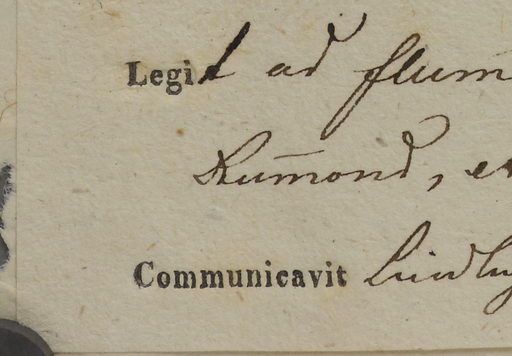 Legit ad flum
Drumond, e
Communicavit Lindley